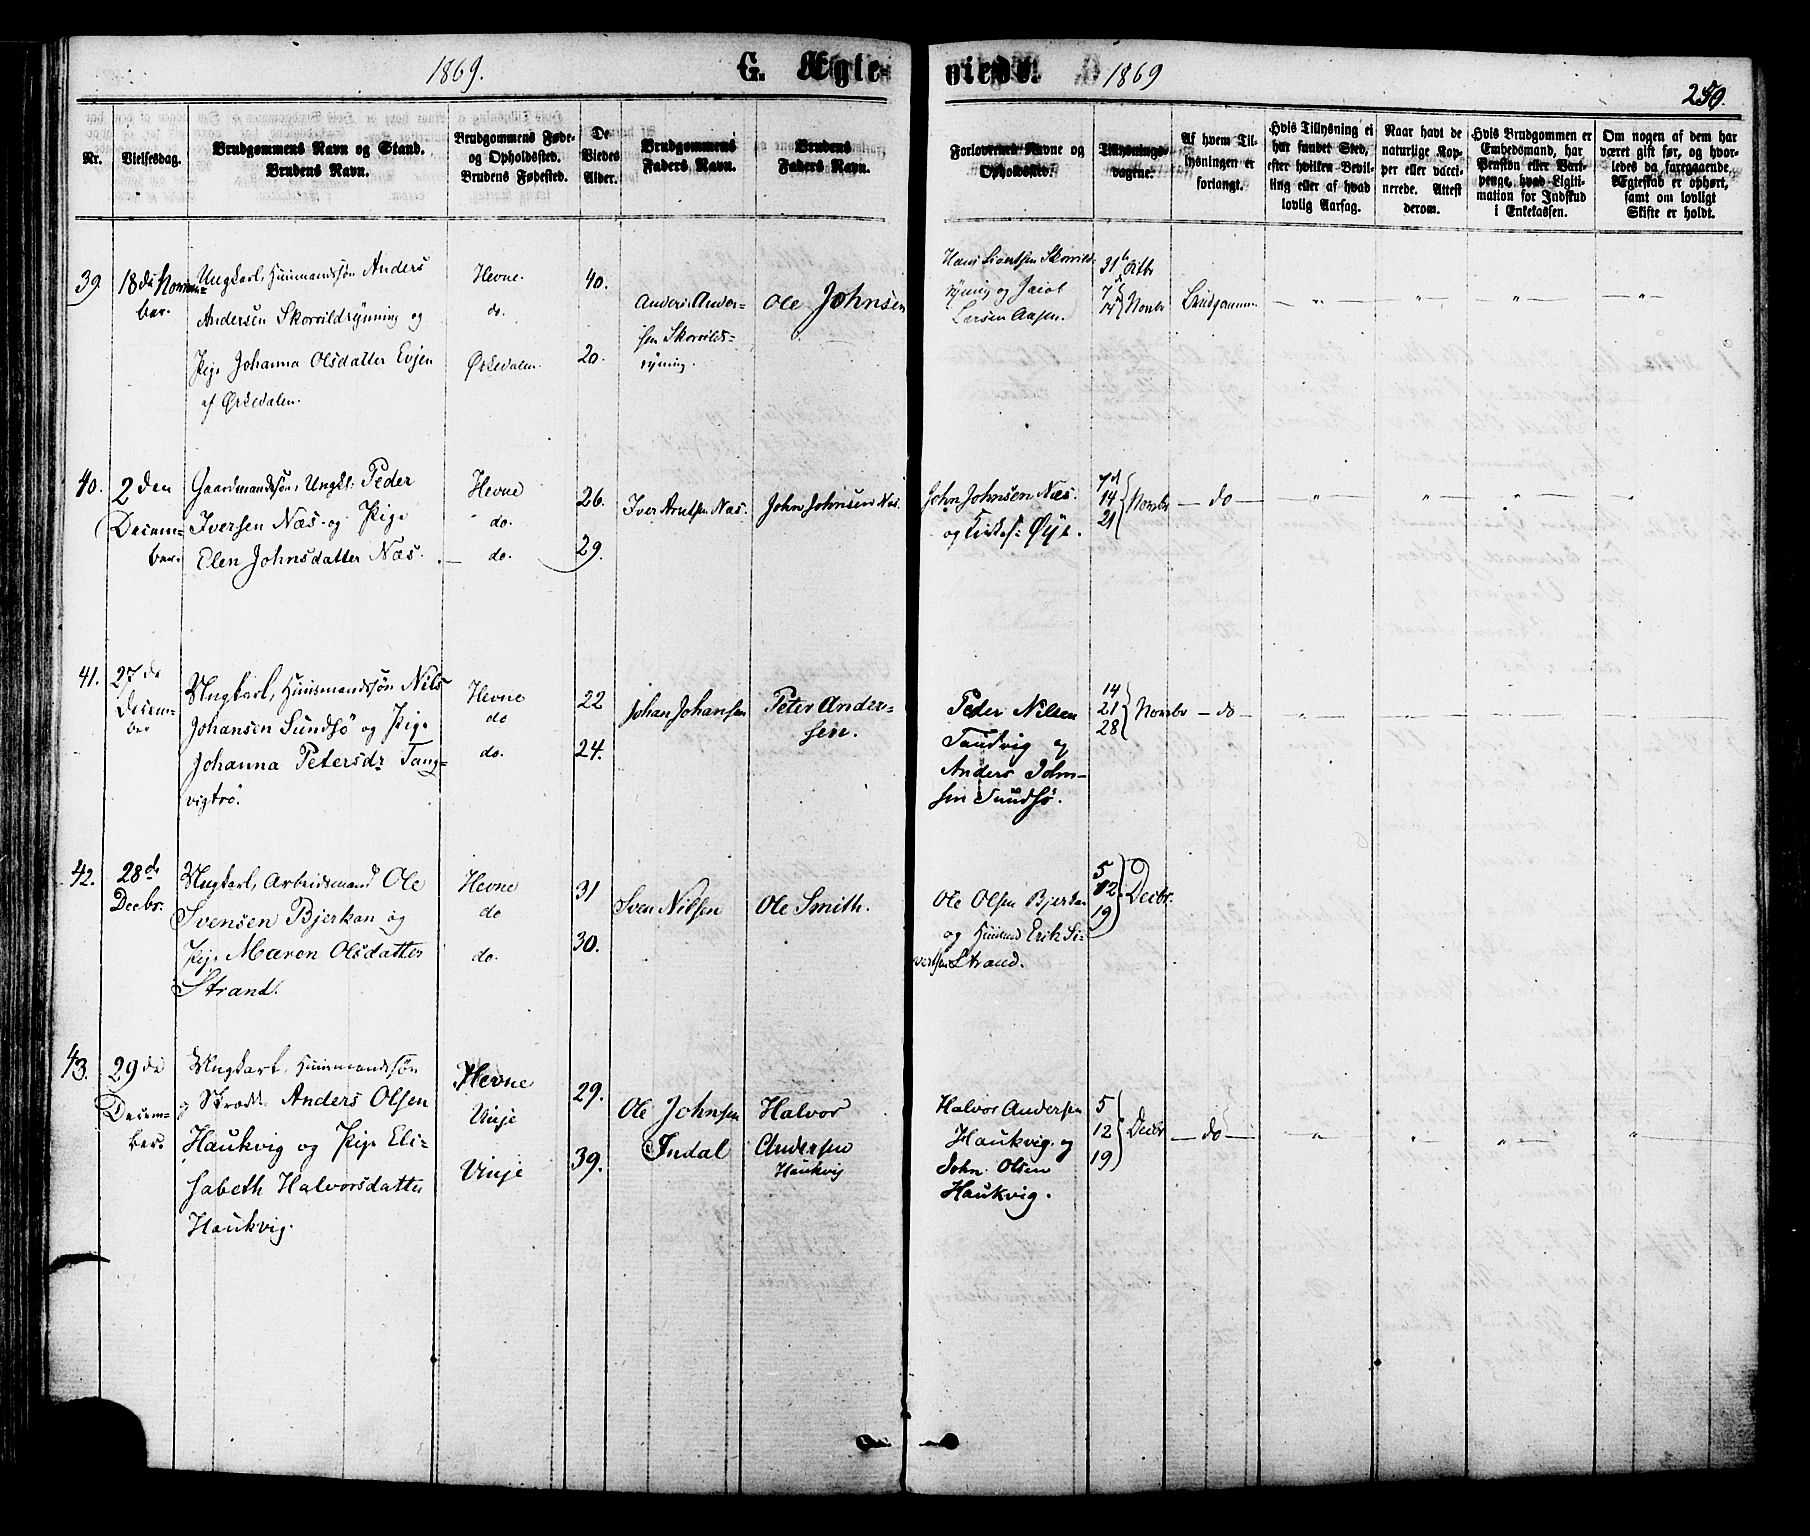 1869. G. Ægte- viede. 1869
259.
Nr.
Vielsesdag.
Brudgommens Navn og Stand.
Brudens Navn.
Brudgommens Føde-
og Opholdssted.
Brudens Fødested.
De
Viedes
Alder.
Brudgommens
Faders Navn.
Brudens
Faders Navn.
Forlovernes Navne og
Opholdssted.
Tillysnings-
dagene.
Af hvem Til-
lysningen er
forlangt.
Hvis Tillysning ei
har fundet Sted,
efter hvilken Bevil-
ling eller af hvad
lovlig Aarsag.
Naar havt de
naturlige Kop-
per eller vacci-
nerede. Attest
derom.
Hvis Brudgommen er
Embedsmand, har
Pension eller Vart-
penge, hvad Ligiti-
mation for Indskud
i Enkekassen.
Om nogen af dem har
været gift før, og hvor-
ledes da foregaaende
Ægteskab er ophørt,
samt om lovligt
Skifte er holdt.
39. 18de Novem-
ber.
Ungkarl, Huusmandssøn Anders
Andersen Skorvildrynning og
Pige Johanna Olsdatter Evjen
af Ørkedalen.
Hevne
do.
Ørkedalen.
40.
20.
Anders Ander-
sen Skorvilds-
rynning.
Ole Johnsen
Hans Sivertsen Skorvild-
rynning og Jacob
Larsen Aasen.
31te Octbr
7de
14 Novbr
Brudgommen
40. 2den
Decem-
ber.
Gaardmandssøn, Ungk: Peder
Iversen Næs og Pige
Elen Johnsdatter Næs.
Hevne
do.
do.
26.
29.
Iver Arntsen Næs
John Johnsen Næs.
John Johnsen Næs.
og Øye.
7de
14
21 Novbr
do
41. 27de
Decem-
ber
Ungkarl, Huusmandssøn Nils
Johansen Sundsø og Pige
Johanna Petersdr Tang-
vigtrø.
Hevne
do
do.
22
24.
Johan Johansen
Peter Ander-
sen.
Peder Nilsen
Tandvig og
Anders John-
sen Sundsø.
14
21
28 Novbr
do
42. 28de
Decbr.
Ungkarl, Arbeidsmand Ole
Svensen Bjerkan og
Pige Maren Olsdatter
Strand.
Hevne
do
do.
31
30.
Sven Nilsen
Ole Smith.
Ole Olsen Bjerkan
og Huusmd Erik Si-
vertsen Strand.
5
12
19 Decbr.
43. 29de
Decem-
ber
Ungkarl, Huusmandssøn
og Skræd. Anders Olsen
Haukvig og Pige Eli-
sabeth Halvorsdatter
Haukvig.
Hevne
Vinje
Vinje
29.
39.
Ole Johnsen
Indal
Halvor
Andersen
Haukvig
Halvor Andersen
Haukvig og
John Olsen
Haukvig.
5
12
19 Decbr
do